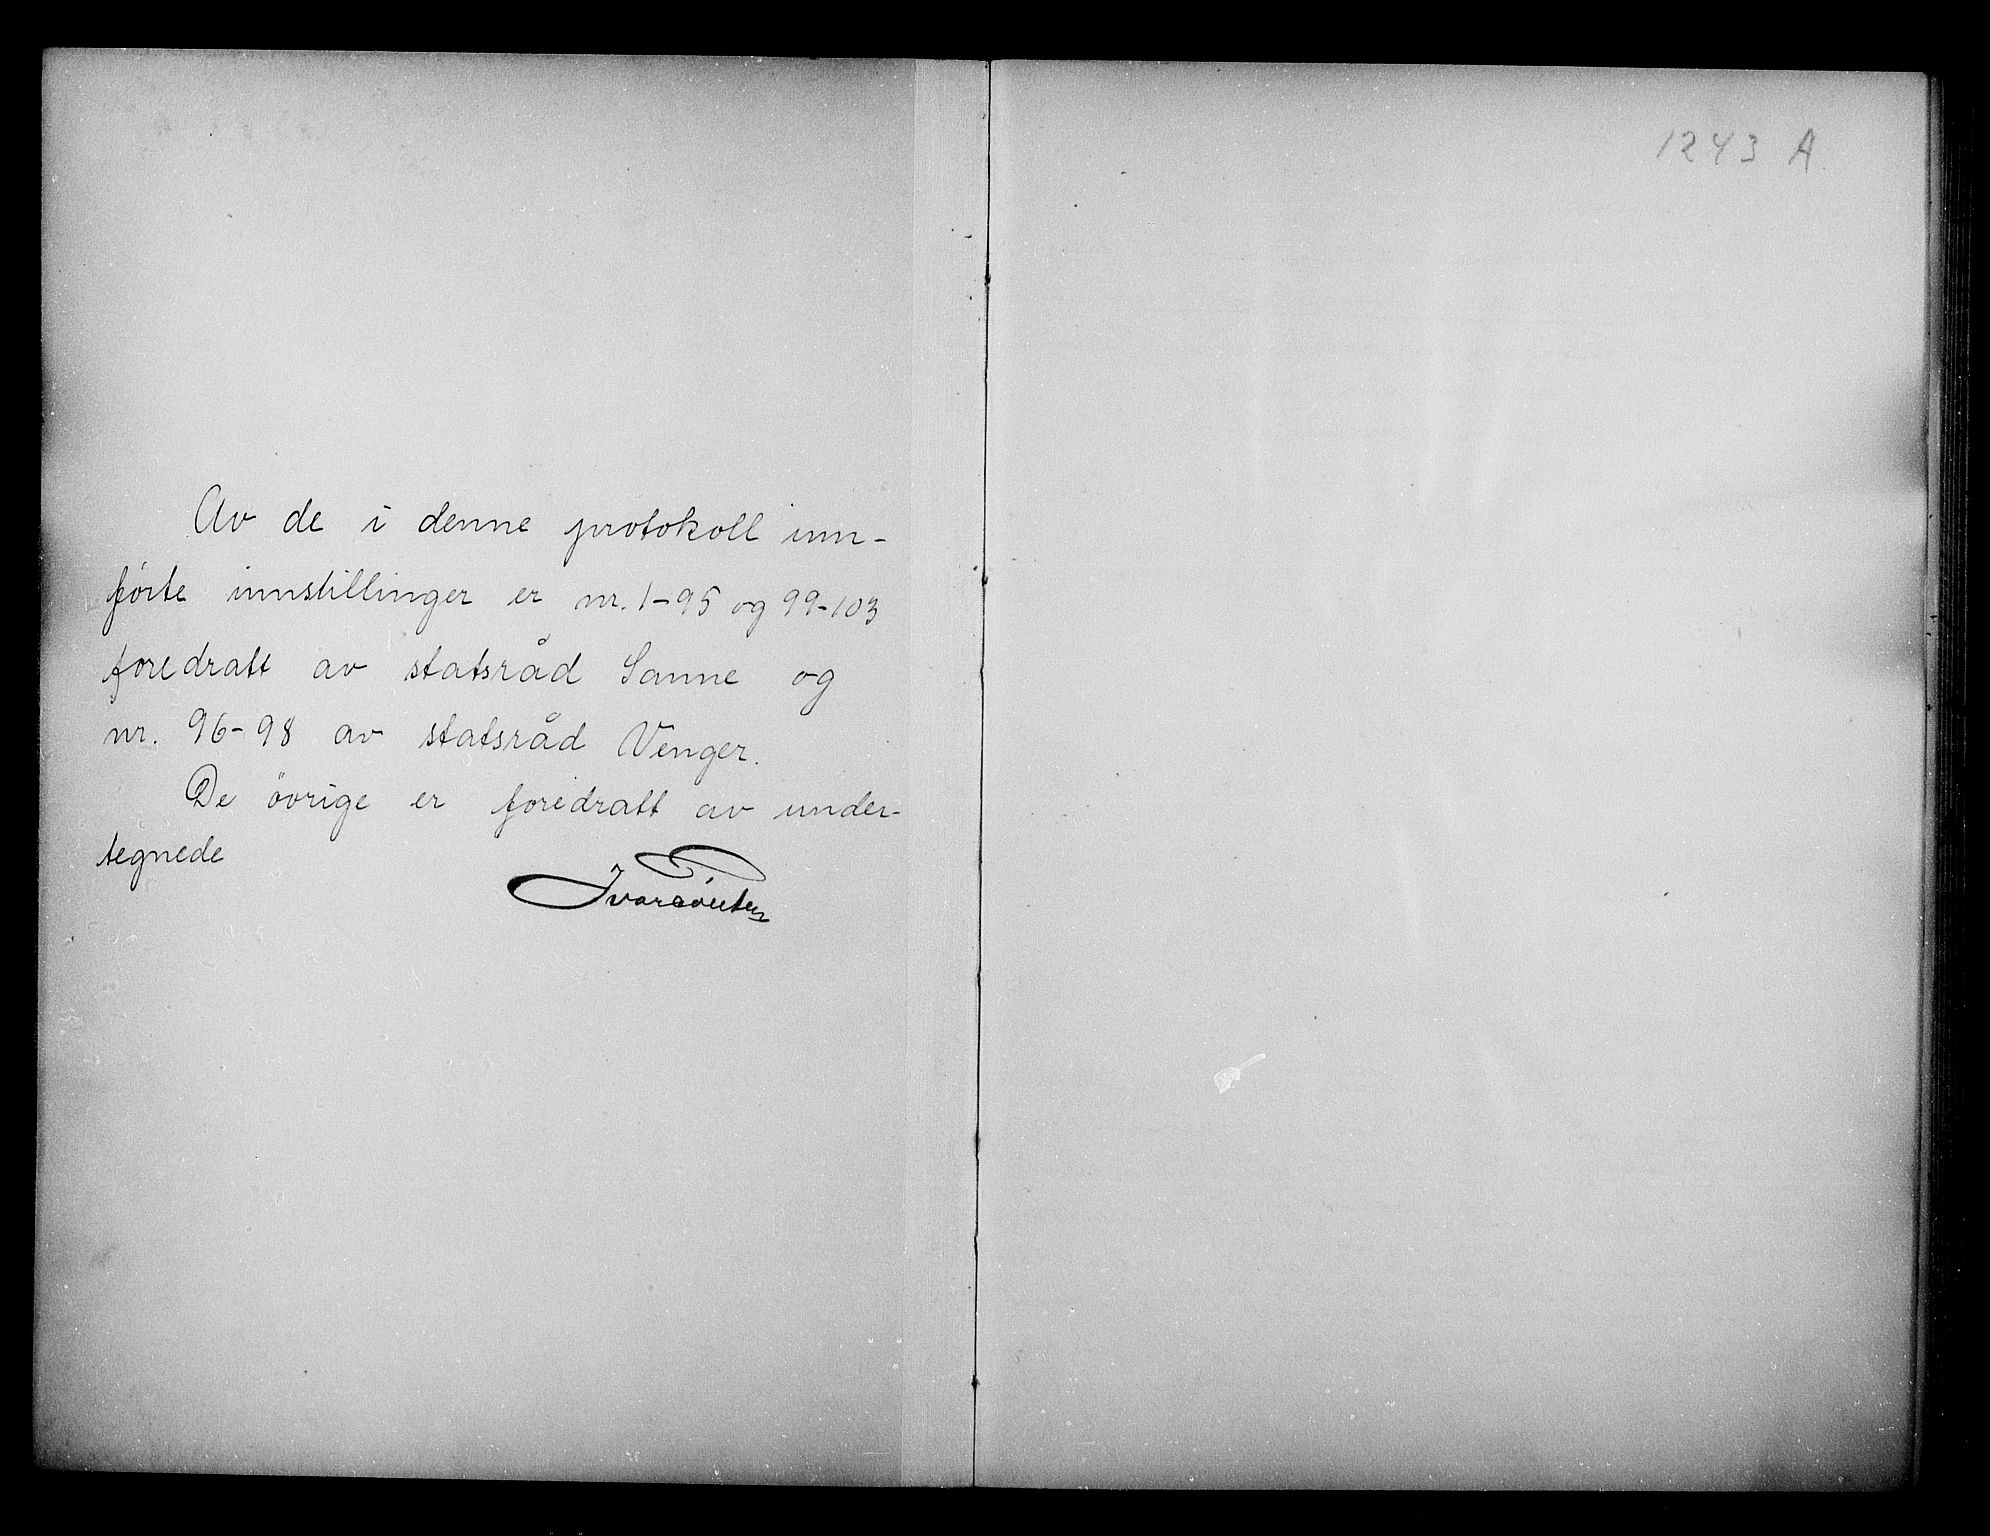 Av de i denne protokoll inn-
förte innstillinger er nr. 1-95 og 99-103
foredratt av statsråd Sanne og
nr. 96-98 av statsråd Venger.
De övrige er foredratt av under-
tegnede
1243 A